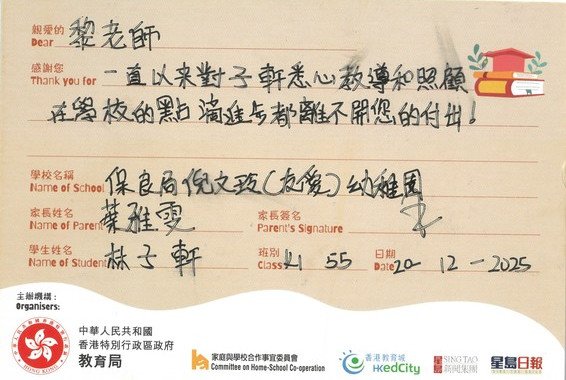 親愛的 黎老師
Dear
感謝您 一直以來對子軒悉心教導和照顧
Thank you for
在學校的點滴進步都離不開您的付出！
學校名稱 保良局倪文玲(友愛)幼稚園
Name of School
家長姓名 葉雅雯 家長簽名
Name of Parent Parent's Signature
學生姓名 林子軒 班別 K1 55 日期 20-12-2025
Name of Student Class Date
主辦機構：
Organisers:
HONG KONG
中華人民共和國
香港特別行政區政府
教育局
家庭與學校合作事宜委員會
Committee on Home-School Co-operation
香港教育城
HKedCity
SINGTAO
新聞集團
星島日報